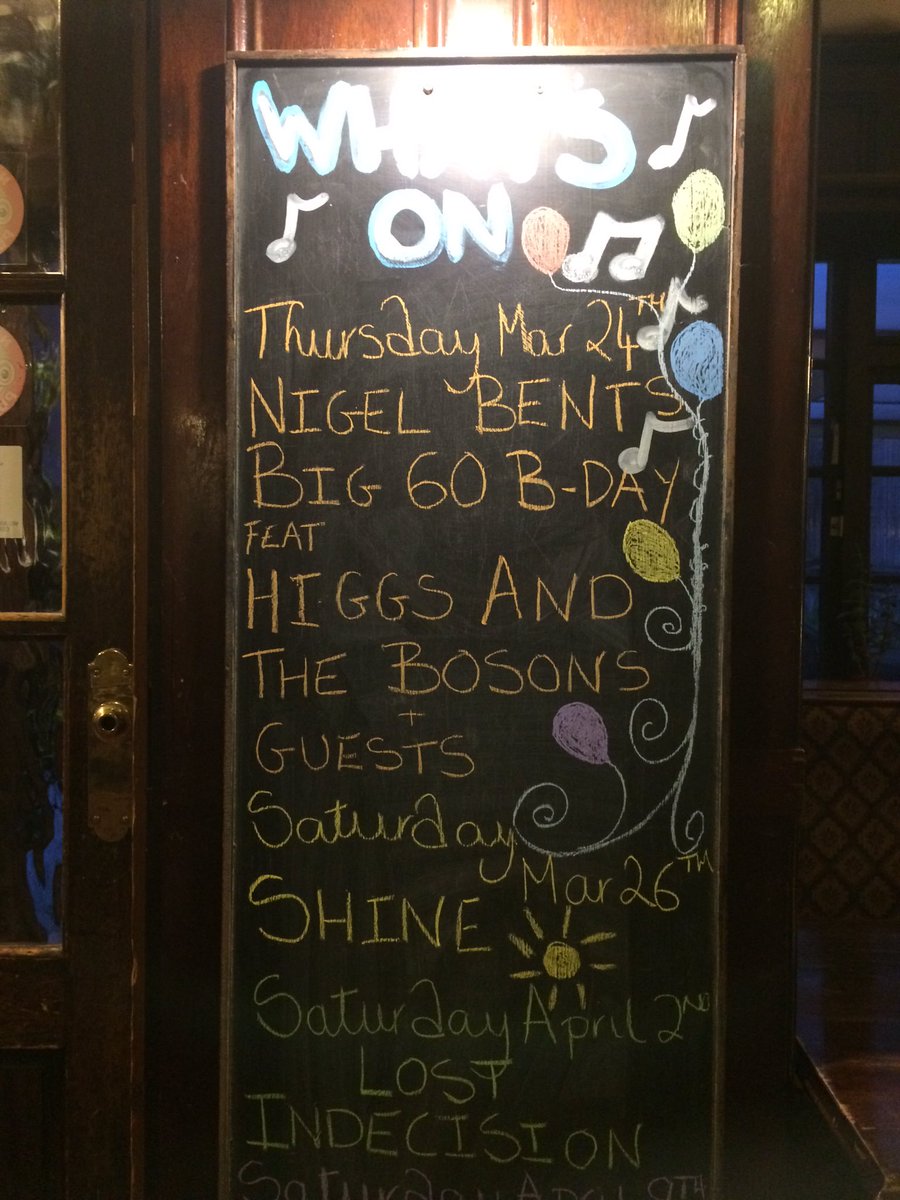 WHAT'S
ON
Thursday Mar 24TH
NIGEL BENTS
BIG 60 B-DAY
FEAT
HIGGS AND
THE BOSONS
+
GUESTS
Saturday
Mar 26TH
SHINE
Saturday April 2ND
LOST
INDECISION
Saturday April 9TH